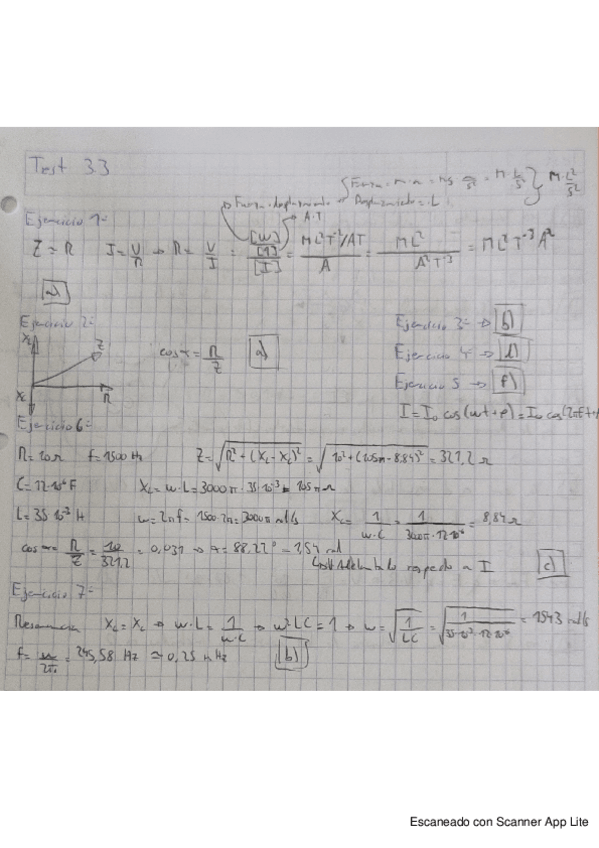 Test 33
Fuerza = m·a = kg m/s² = M·L/S²
M·L²/S²
Fuerza·desplazamiento Desplazamiento = L
A·T
Ejercicio 1:
Z = R I = V/R → R = V/I = [W]/[q]/[I] = ML²T⁻²/AT / A = ML²/A²T⁻³ = ML²T⁻³A²
a)
Ejercicio 2:
XL Z R Xc
cos α = R/Z a)
Ejercicio 3 → b)
Ejercicio 4 → d)
Ejercicio 5 → f)
I = I₀ cos(wt+φ) = I₀ cos(2πft+
Ejercicio 6:
R = 10 Ω f = 1500 Hz Z = √(R² + (XL - Xc)²) = √(10² + (105π - 8,84)²) = 321,2 Ω
C = 12·10⁻⁶ F XL = w·L = 3000π · 35·10⁻³ = 105π Ω
L = 35·10⁻³ H w = 2πf = 1500·2π = 3000π rad/s Xc = 1/w·C = 1/3000π·12·10⁻⁶ = 8,84 Ω
cos α = R/Z = 10/321,2 = 0,031 → α = 88,22° = 1,54 rad
está adelantado respecto a I c)
Ejercicio 7:
Resonancia XL = Xc → w·L = 1/w·C → w²·LC = 1 → w = √(1/LC) = √(1/35·10⁻³·12·10⁻⁶) = 1543 rad/s
f = w/2π = 245,58 Hz ≃ 0,25 kHz b)
Escaneado con Scanner App Lite